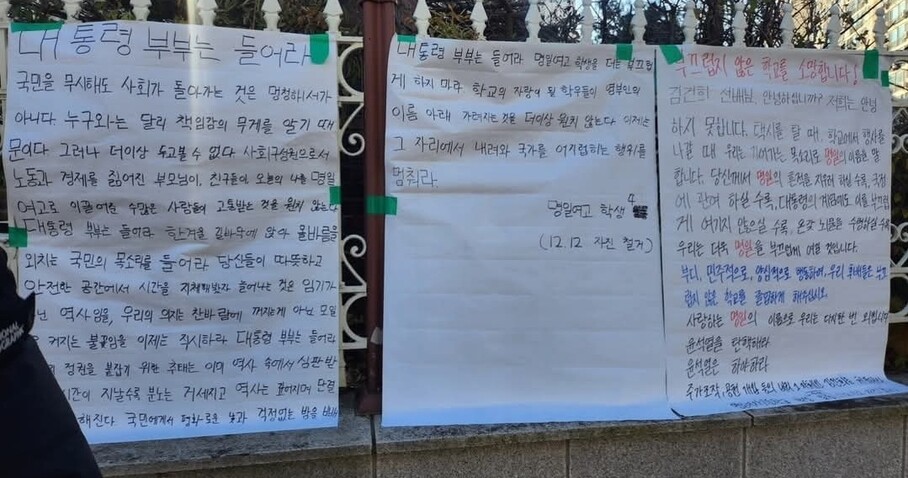 대통령 부부는 들어라
국민을 무시해도 사회가 돌아가는 것은 멍청해서가
아니다. 누구와는 달리 책임감의 무게를 알기 때
문이다 그러나 더이상 두고볼 수 없다 사회구성원으로서
노동과 경제를 짊어진 부모님이, 친구들이, 오늘의 나를 명일
여고로 이끌어준 수많은 사람들이 고통받는 것을 원치 않는다
대통령 부부는 들어라 한겨울 길바닥에 앉아 올바름을
외치는 국민의 목소리를 들어라 당신들이 따뜻하고
안전한 공간에서 시간을 지체해봤자 늘어나는 것은 임기가
닌 역사임을, 우리의 의지는 찬바람에 꺼지는게 아닌 모일
커지는 불꽃임을 이제는 직시하라 대통령 부부는 들어라
정권을 붙잡기 위한 추태는 이미 역사 속에서 심판받
시간이 지날수록 분노는 거세지고 역사는 깊어지며 단결
해진다 국민에게서 평화로운 낮과 걱정없는 밤을
대통령 부부는 들어라 명일여고 학생을 더는 부끄럽
게 하지 마라 학교의 자랑이 될 학우들이 영부인의
이름 아래 가려지는 것을 더이상 원치 않는다 이제는
그 자리에서 내려와 국가를 어지럽히는 행위를
멈춰라
명일여고 학생 4
(12.12 자진 철거)
부끄럽지 않은 학교를 소망합니다!
김건희 선배님, 안녕하십니까? 저희는 안녕
하지 못합니다. 택시를 탈 때, 학교에서 행사를
나갈 때 우리는 기어가는 목소리로 명일의 이름을 말
합니다. 당신께서 명일의 흔적을 지우려 하실 수록, 국정
에 관여 하실 수록, 대통령의 계엄에도 이를 부끄럽
게 여기지 않으실 수록, 온갖 뇌물을 수수하실 수록
우리는 더욱 명일을 부끄럽게 여길 것입니다.
부디, 민주적으로, 양심적으로 행동하여, 우리 후배들은 부끄
럽지 않은 학교를 졸업하게 해주십시오.
사랑하는 명일의 이름으로 우리는 다시 한 번 외칩니다
윤석열을 탄핵하라
윤석열은 하야하라
주가조작,